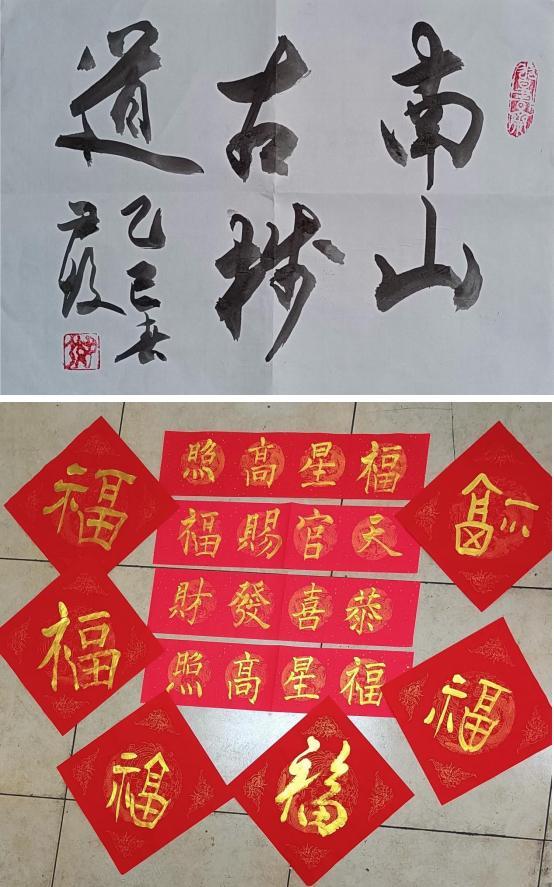 南山
古栈
道
乙巳春
福
福星髙照
天官賜福
恭喜發財
福星髙照
福
福
福
福
福